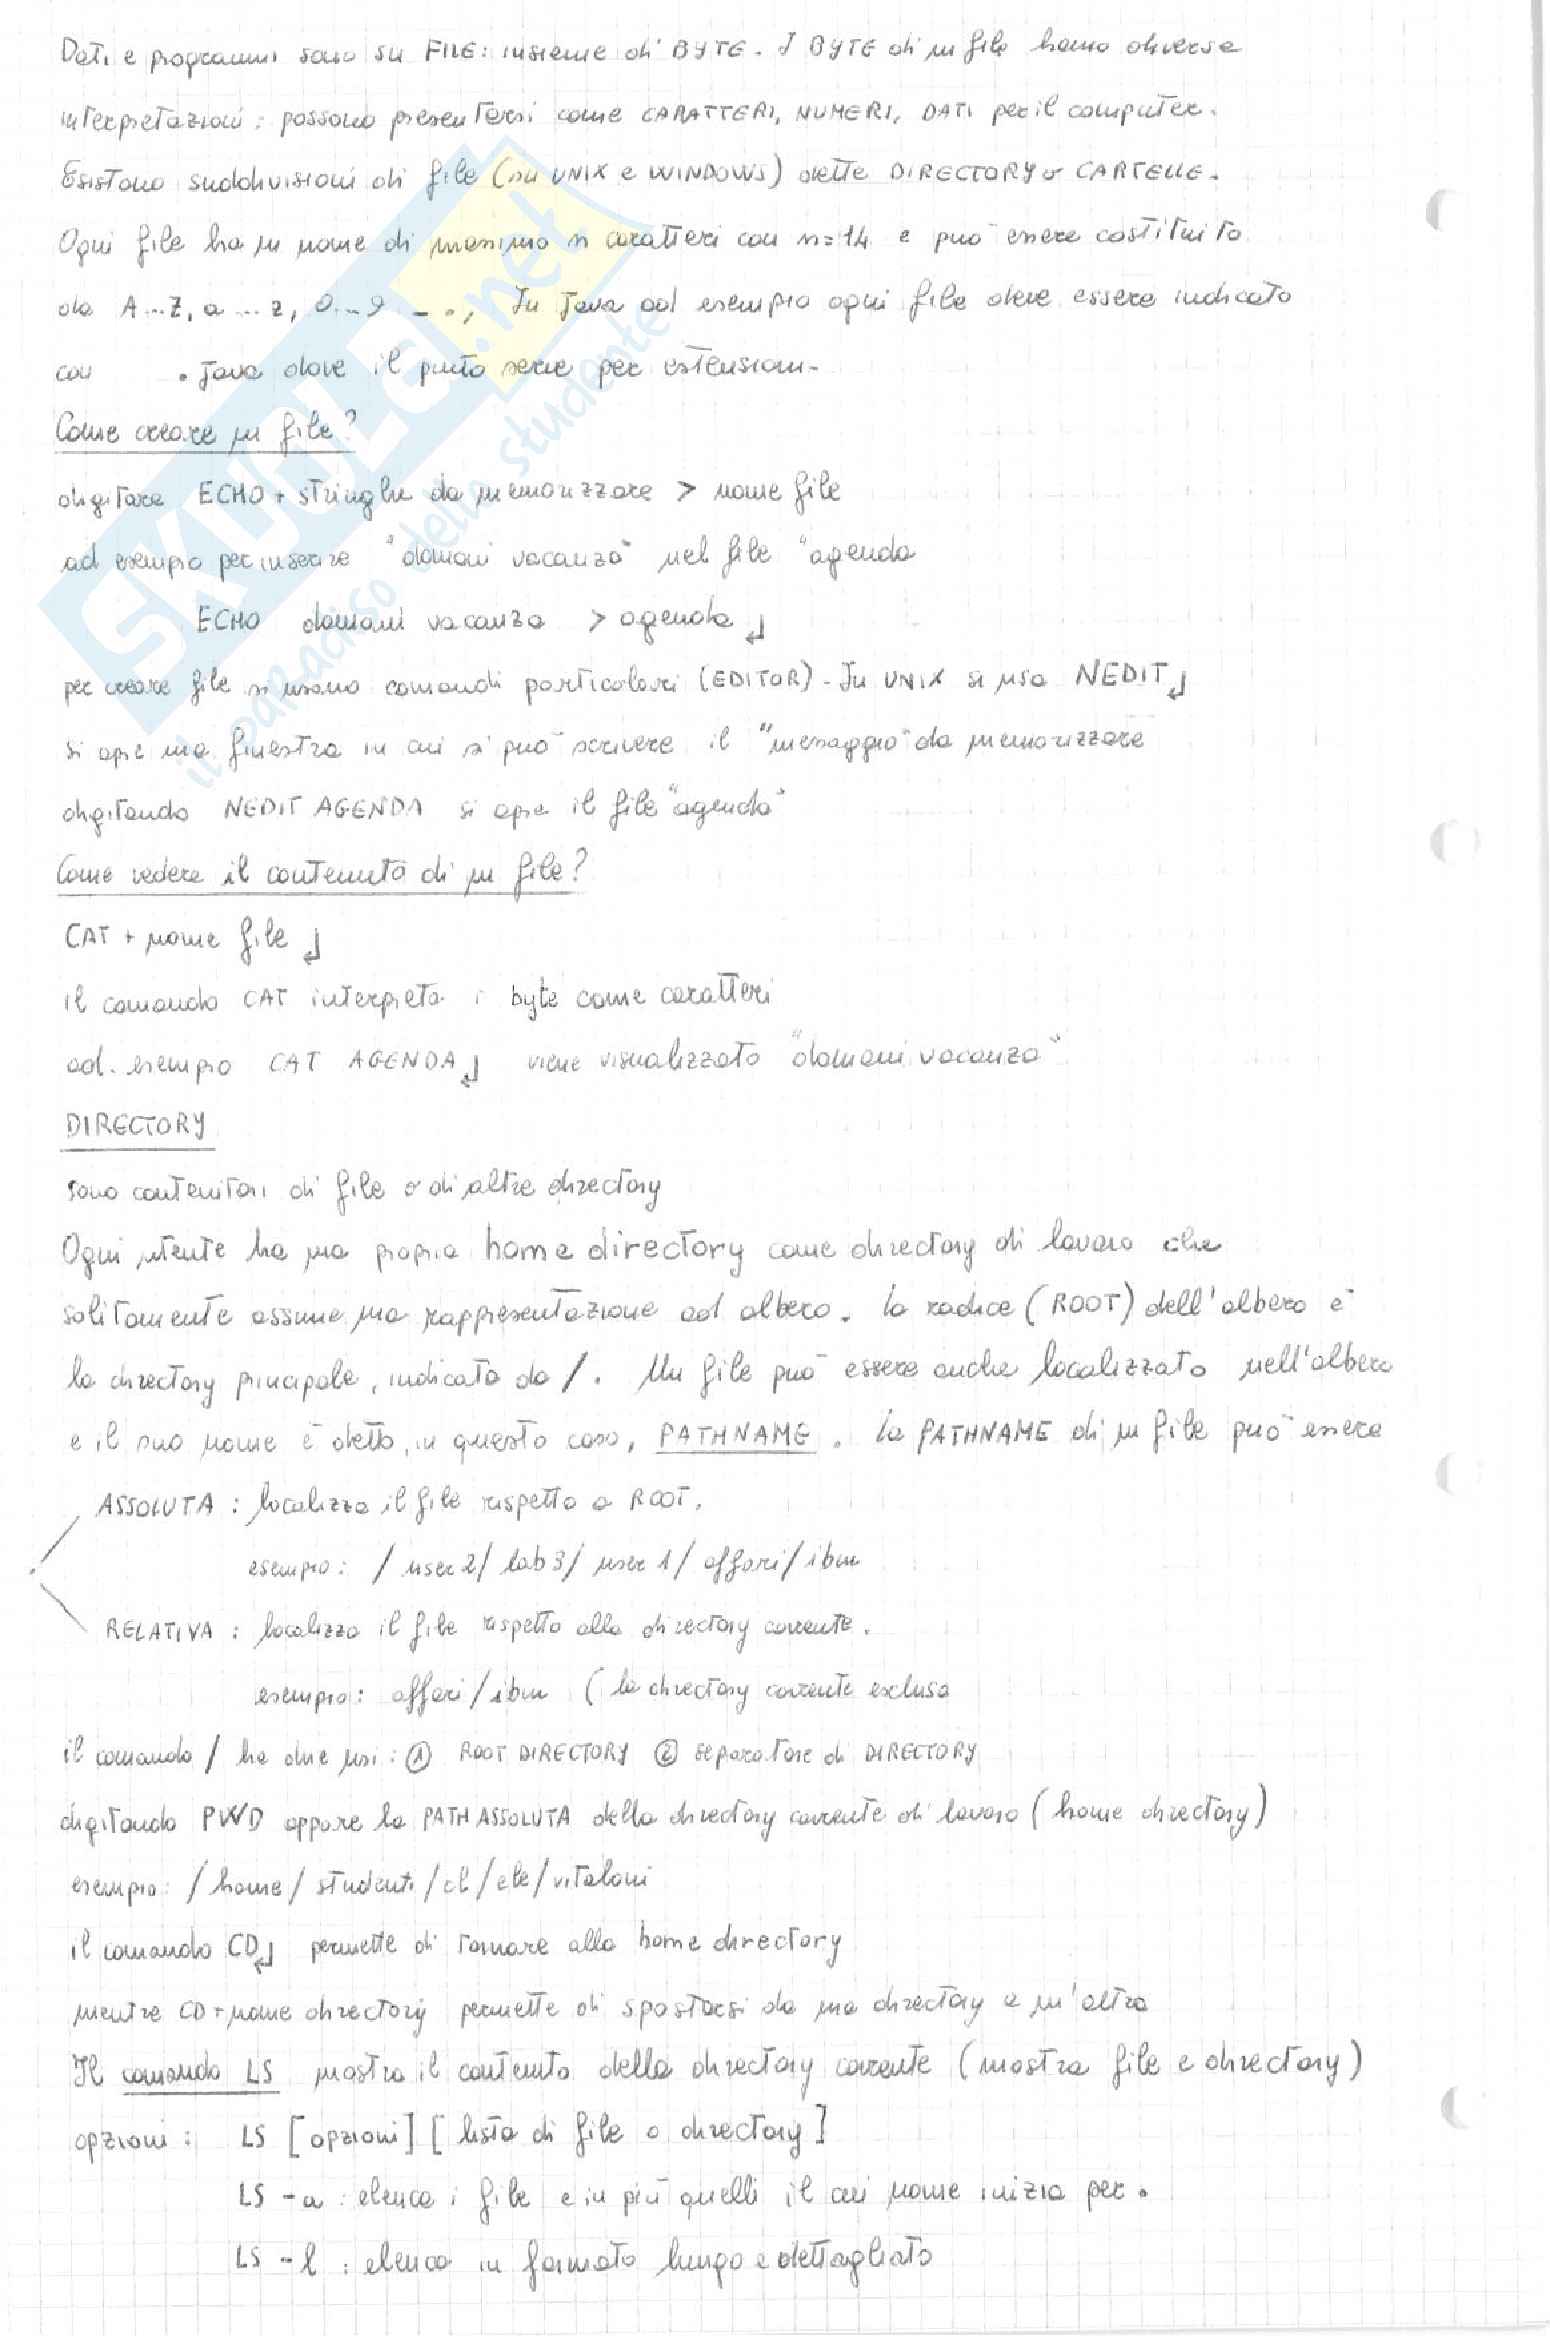 Dati e programmi sono su FILE: insieme di BYTE. I BYTE di un file hanno diverse
interpretazioni: possono presentarsi come CARATTERI, NUMERI, DATI per il computer.
Esistono suddivisioni di file (su UNIX e WINDOWS) dette DIRECTORY o CARTELLE.
Ogni file ha un nome di massimo n caratteri con n=14 e può essere costituito
da A...Z, a...z, 0...9 _ . , In Java ad esempio ogni file deve essere indicato
con .java dove il punto serve per estensioni.
Come creare un file?
digitare ECHO + stringhe da memorizzare > nome file
ad esempio per inserire "domani vacanza" nel file "agenda
ECHO domani vacanza > agenda ↵
per creare file si usano comandi particolari (EDITOR). In UNIX si usa NEDIT ↵
si apre una finestra in cui si può scrivere il "messaggio" da memorizzare
digitando NEDIT AGENDA si apre il file "agenda"
Come vedere il contenuto di un file?
CAT + nome file ↵
il comando CAT interpreta i byte come caratteri
ad. esempio CAT AGENDA ↵ viene visualizzato "domani vacanza"
DIRECTORY
sono contenitori di file o di altre directory
Ogni utente ha una propria home directory come directory di lavoro che
solitamente assume una rappresentazione ad albero. la radice (ROOT) dell'albero è
la directory principale, indicata da /. Un file può essere anche localizzato nell'albero
e il suo nome è detto, in questo caso, PATHNAME. la PATHNAME di un file può essere
ASSOLUTA: localizza il file rispetto a ROOT.
esempio: /user2/lab3/user1/affari/ibm
RELATIVA: localizza il file rispetto alla directory corrente.
esempio: affari/ibm (la directory corrente esclusa
il comando / ha due usi: ① ROOT DIRECTORY ② separatore di DIRECTORY
digitando PWD appare la PATH ASSOLUTA della directory corrente di lavoro (home directory)
esempio: /home/studenti/cl/ele/vitaloni
il comando CD ↵ permette di tornare alla home directory
mentre CD + nome directory permette di spostarsi da una directory a un'altra
Il comando LS mostra il contenuto della directory corrente (mostra file e directory)
opzioni: LS [opzioni] [lista di file o directory]
LS -a: elenca i file e in più quelli il cui nome inizia per .
LS -l: elenca in formato lungo e dettagliato
SKUOLA.net
il paradiso dello studente